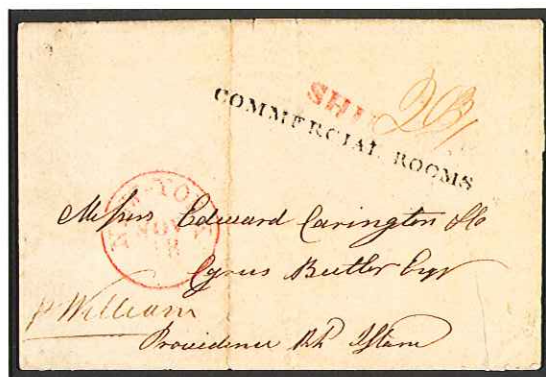 SHI
COMMERCIAL ROOMS
NEW-YORK
NOV
8
Messrs Edward Carington & Co
Cyrus Butler Esqr
p William
Providence Rh Island